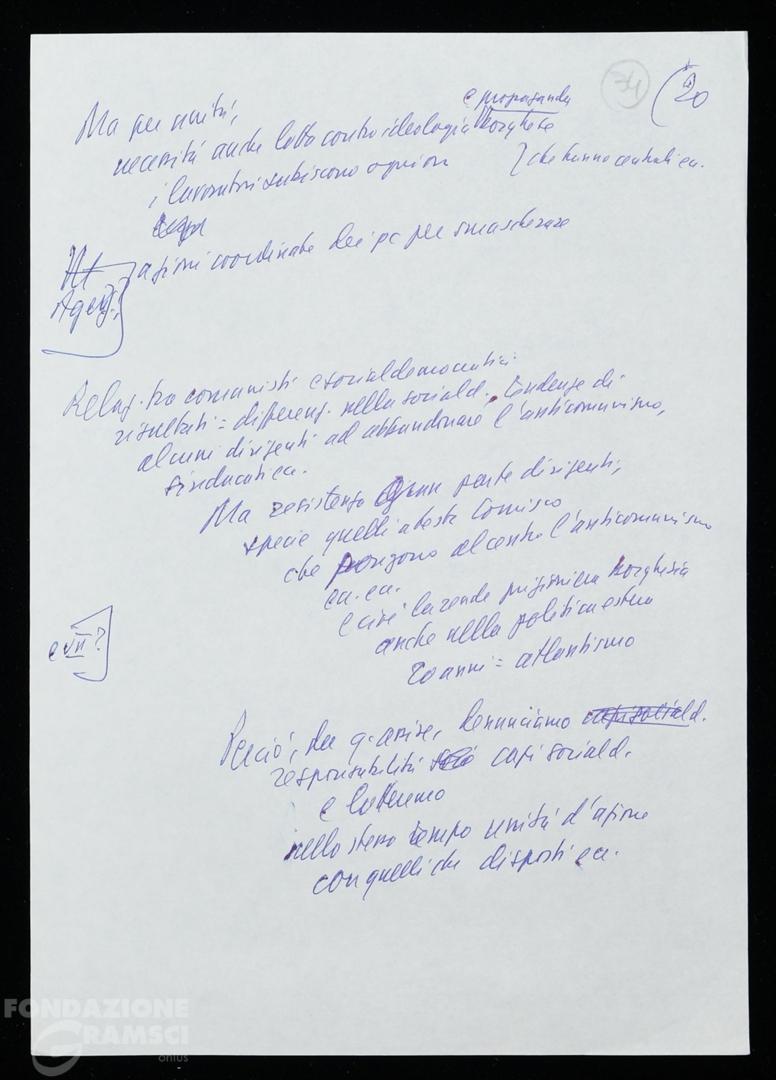 34
20
Ma per unità,
e propaganda
necessità anche lotta contro ideologia borghese
i lavoratori subiscono ognora } che hanno centrali ecc.
azioni coordinate dei pc per smascherare
Relaz. tra comunisti e socialdemocratici
risultati = differenz. nella sociald. Tendenze di
alcuni dirigenti ad abbandonare l'anticomunismo,
sindacati ecc.
Ma resistenza gran parte dirigenti,
specie quelli a testa Comisco
che pongono al centro l'anticomunismo
ecc. ecc.
e ciò la rende prigioniera borghesia
anche nella politica estera
20 anni = atlantismo
e VII?
Perciò, da q. assise, denunciamo capi sociald.
responsabilità capi sociald.
e lotteremo
nello stesso tempo unità d'azione
con quelli che disposti ecc.
FONDAZIONE
GRAMSCI
onlus